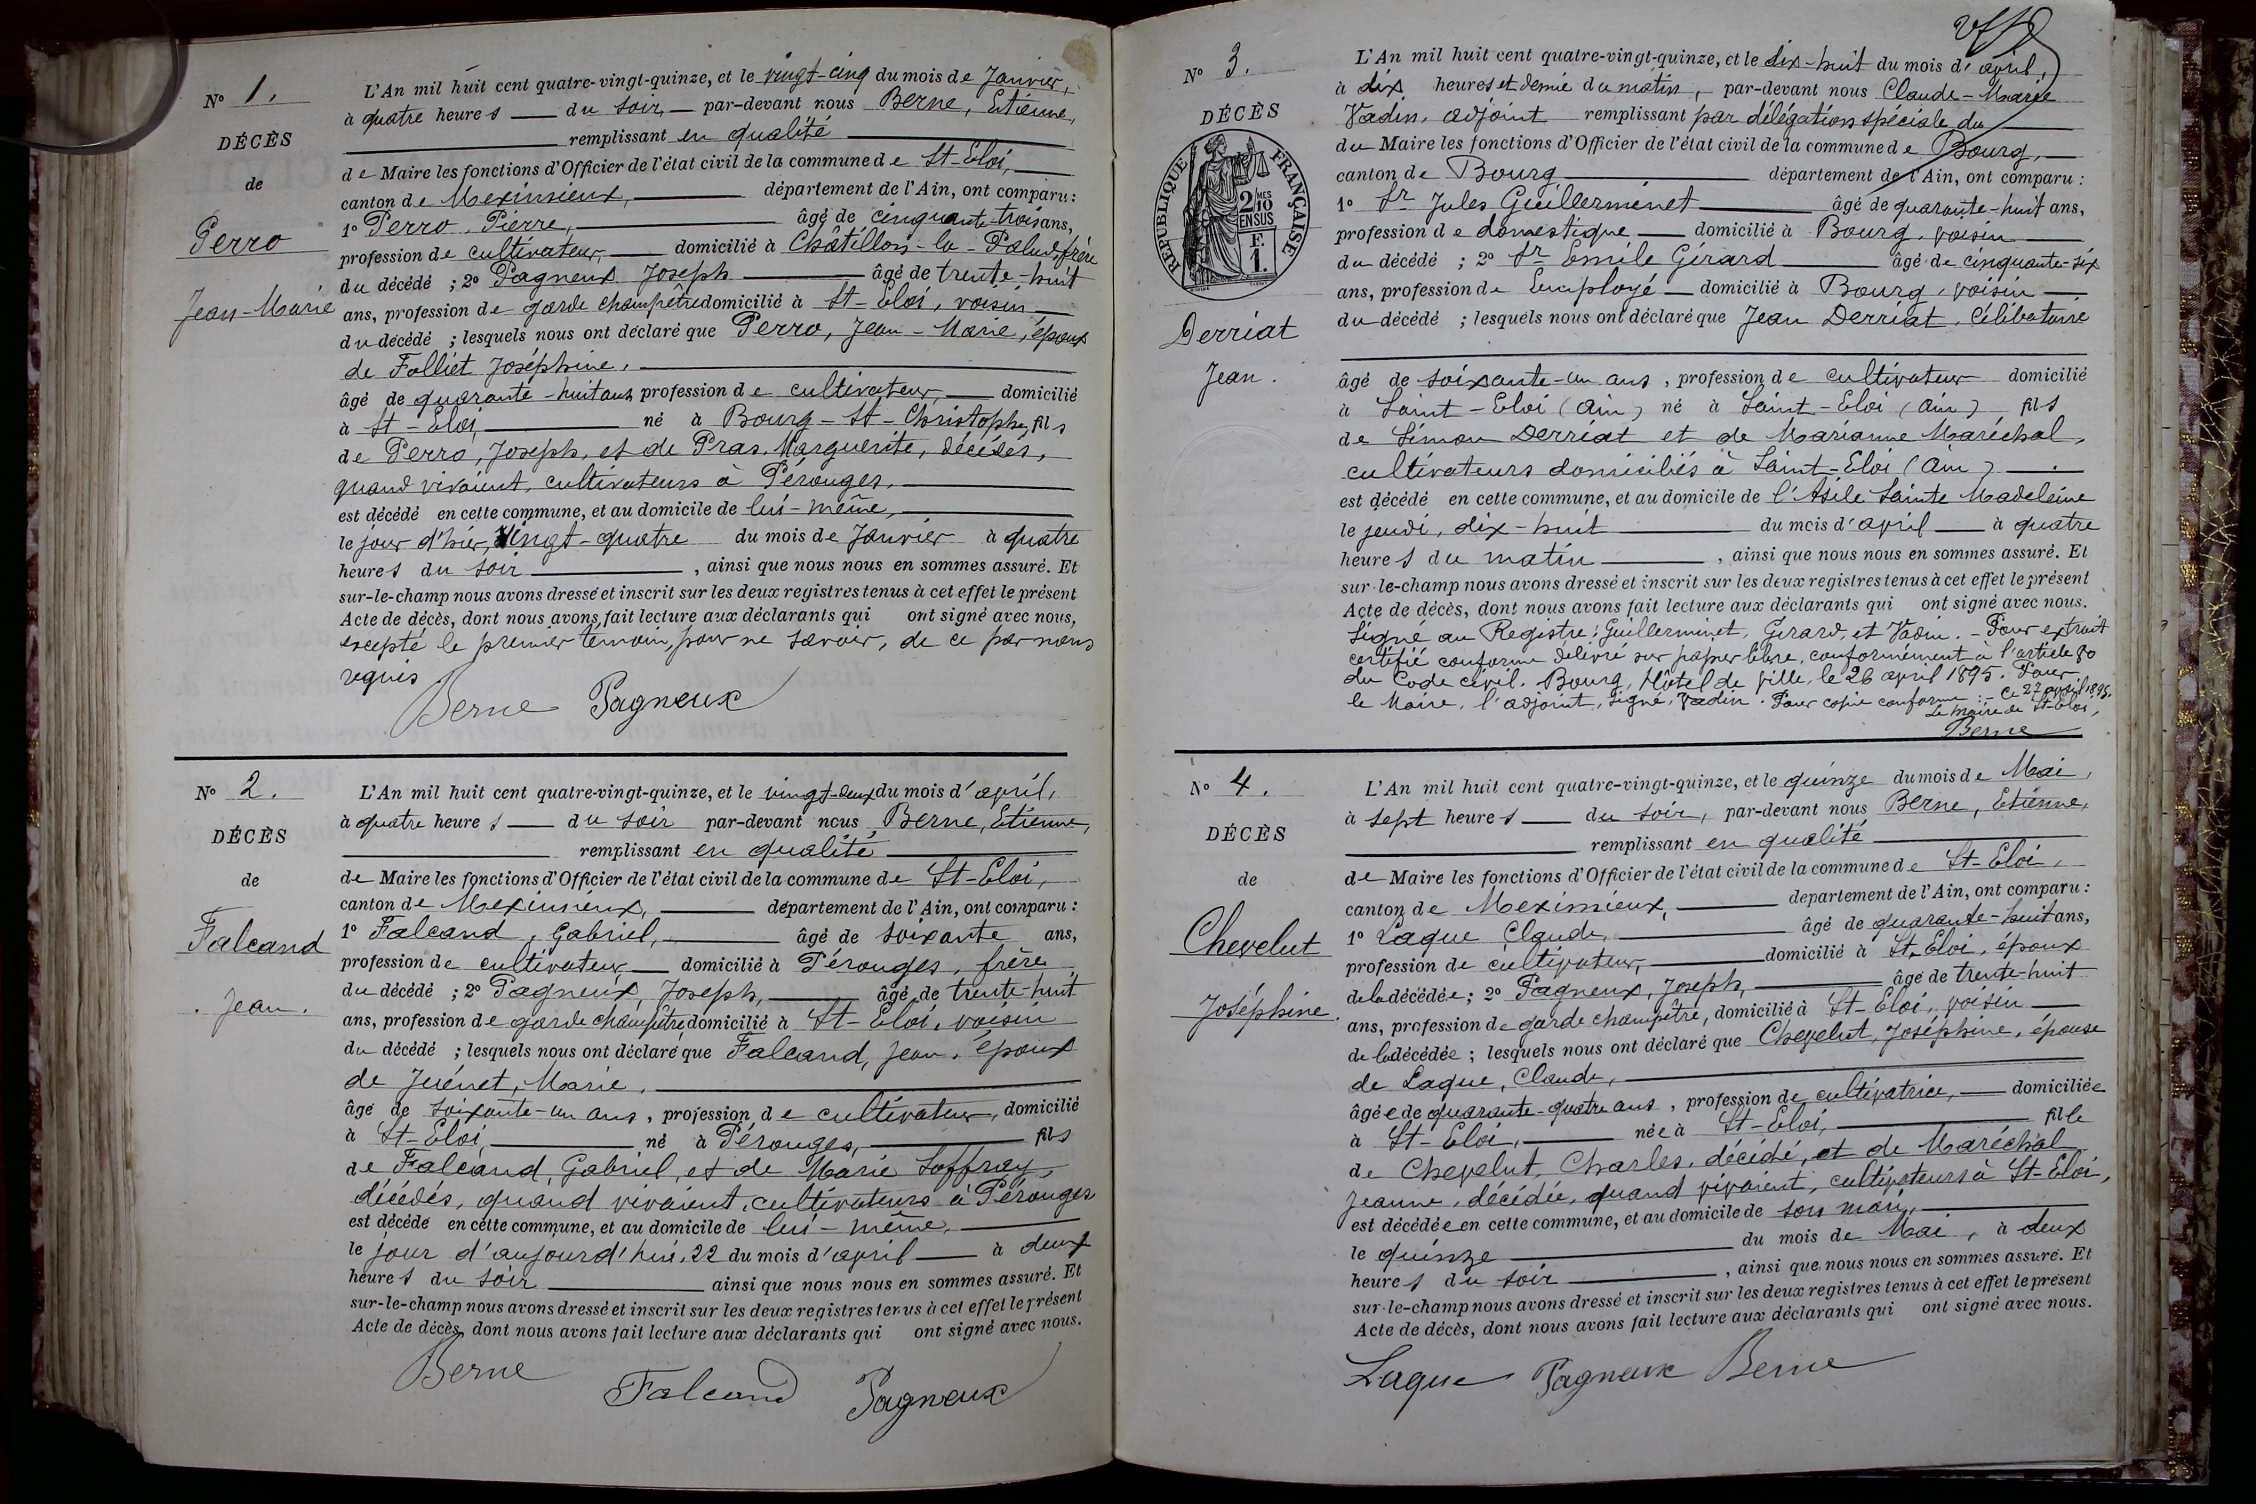 N° 1.
DÉCÈS
de
Perro
Jean-Marie
L'An mil huit cent quatre-vingt-quinze, et le vingt-cinq du mois de Janvier,
à quatre heures du soir, par-devant nous Berne, Etienne,
remplissant en qualité
de Maire les fonctions d'Officier de l'état civil de la commune de St-Eloi,
canton de Meximieux, département de l'Ain, ont comparu :
1° Perro, Pierre, âgé de cinquante-trois ans,
profession de cultivateur, domicilié à Châtillon-la-Palud, frère
du décédé ; 2° Pagneux Joseph âgé de trente-huit
ans, profession de garde champêtre domicilié à St-Eloi, voisin
du décédé ; lesquels nous ont déclaré que Perro, Jean-Marie, époux
de Folliet Joséphine,
âgé de quarante-huit ans profession de cultivateur, domicilié
à St-Eloi, né à Bourg-St-Christophe, fils
de Perro, Joseph, et de Pras, Marguerite, décédés,
quand vivaient, cultivateurs à Pérouges,
est décédé en cette commune, et au domicile de lui-même,
le jour d'hier, vingt-quatre du mois de Janvier à quatre
heures du soir, ainsi que nous nous en sommes assuré. Et
sur-le-champ nous avons dressé et inscrit sur les deux registres tenus à cet effet le présent
Acte de décès, dont nous avons fait lecture aux déclarants qui ont signé avec nous,
excepté le premier témoin, pour ne savoir, de ce par nous
requis
Berne Pagneux
N° 2.
DÉCÈS
de
Falcand
Jean.
L'An mil huit cent quatre-vingt-quinze, et le vingt-deux du mois d'avril,
à quatre heures du soir par-devant nous Berne, Etienne,
remplissant en qualité
de Maire les fonctions d'Officier de l'état civil de la commune de St-Eloi,
canton de Meximieux, département de l'Ain, ont comparu :
1° Falcand, Gabriel, âgé de soixante ans,
profession de cultivateur domicilié à Pérouges, frère
du décédé ; 2° Pagneux, Joseph, âgé de trente-huit
ans, profession de garde champêtre domicilié à St-Eloi, voisin
du décédé ; lesquels nous ont déclaré que Falcand, Jean, époux
de Juénet, Marie,
âgé de soixante-un ans, profession de cultivateur, domicilié
à St-Eloi, né à Pérouges, fils
de Falcand, Gabriel, et de Marie Soffray,
décédés, quand vivaient, cultivateurs à Pérouges
est décédé en cette commune, et au domicile de lui-même,
le jour d'aujourd'hui, 22 du mois d'avril à deux
heures du soir ainsi que nous nous en sommes assuré. Et
sur-le-champ nous avons dressé et inscrit sur les deux registres tenus à cet effet le présent
Acte de décès, dont nous avons fait lecture aux déclarants qui ont signé avec nous.
Berne Falcand Pagneux
N° 3.
DÉCÈS
RÉPUBLIQUE FRANÇAISE
2/10 MES
EN SUS
F.
1.
Derriat
Jean.
L'An mil huit cent quatre-vingt-quinze, et le dix-huit du mois d'avril,
à dix heures et demie du matin, par-devant nous Claude-Marie
Vadin, adjoint remplissant par délégation spéciale du
du Maire les fonctions d'Officier de l'état civil de la commune de Bourg,
canton de Bourg département de l'Ain, ont comparu :
1° Sr Jules Guillerminet âgé de quarante-huit ans,
profession de domestique domicilié à Bourg, voisin
du décédé ; 2° Sr Emile Gérard âgé de cinquante-six
ans, profession de Employé domicilié à Bourg, voisin
du décédé ; lesquels nous ont déclaré que Jean Derriat, Célibataire
âgé de soixante-un ans, profession de cultivateur domicilié
à Saint-Eloi (Ain) né à Saint-Eloi (Ain) fils
de Simon Derriat et de Marianne Maréchal,
cultivateurs domiciliés à Saint-Eloi (Ain)
est décédé en cette commune, et au domicile de l'Asile Sainte Madeleine
le jeudi, dix-huit du mois d'avril à quatre
heures du matin, ainsi que nous nous en sommes assuré. Et
sur-le-champ nous avons dressé et inscrit sur les deux registres tenus à cet effet le présent
Acte de décès, dont nous avons fait lecture aux déclarants qui ont signé avec nous.
Signé au Registre : Guillerminet, Gérard, et Vadin. - Pour extrait
certifié conforme délivré sur papier libre, conformément à l'article 80
du Code civil. Bourg, Hôtel de ville, le 26 avril 1895. Pour
le Maire, l'adjoint, signé, Vadin. Pour copie conforme : - Ce 27 avril 1895.
Le Maire de St-Eloi,
Berne
N° 4.
DÉCÈS
de
Chevelut
Joséphine.
L'An mil huit cent quatre-vingt-quinze, et le quinze du mois de Mai,
à sept heures du soir, par-devant nous Berne, Etienne,
remplissant en qualité
de Maire les fonctions d'Officier de l'état civil de la commune de St-Eloi,
canton de Meximieux, département de l'Ain, ont comparu :
1° Laque Claude, âgé de quarante-huit ans,
profession de cultivateur, domicilié à St-Eloi, époux
de la décédée ; 2° Pagneux, Joseph, âgé de trente-huit
ans, profession de garde champêtre, domicilié à St-Eloi, voisin
de la décédée ; lesquels nous ont déclaré que Chevelut, Joséphine, épouse
de Laque, Claude,
âgée de quarante-quatre ans, profession de cultivatrice, domiciliée
à St-Eloi, née à St-Eloi, fille
de Chevelut, Charles, décédé, et de Maréchal
Jeanne, décédée, quand vivaient, cultivateurs à St-Eloi,
est décédée en cette commune, et au domicile de son mari,
le quinze du mois de Mai, à deux
heures du soir, ainsi que nous nous en sommes assuré. Et
sur-le-champ nous avons dressé et inscrit sur les deux registres tenus à cet effet le présent
Acte de décès, dont nous avons fait lecture aux déclarants qui ont signé avec nous.
Laque Pagneux Berne